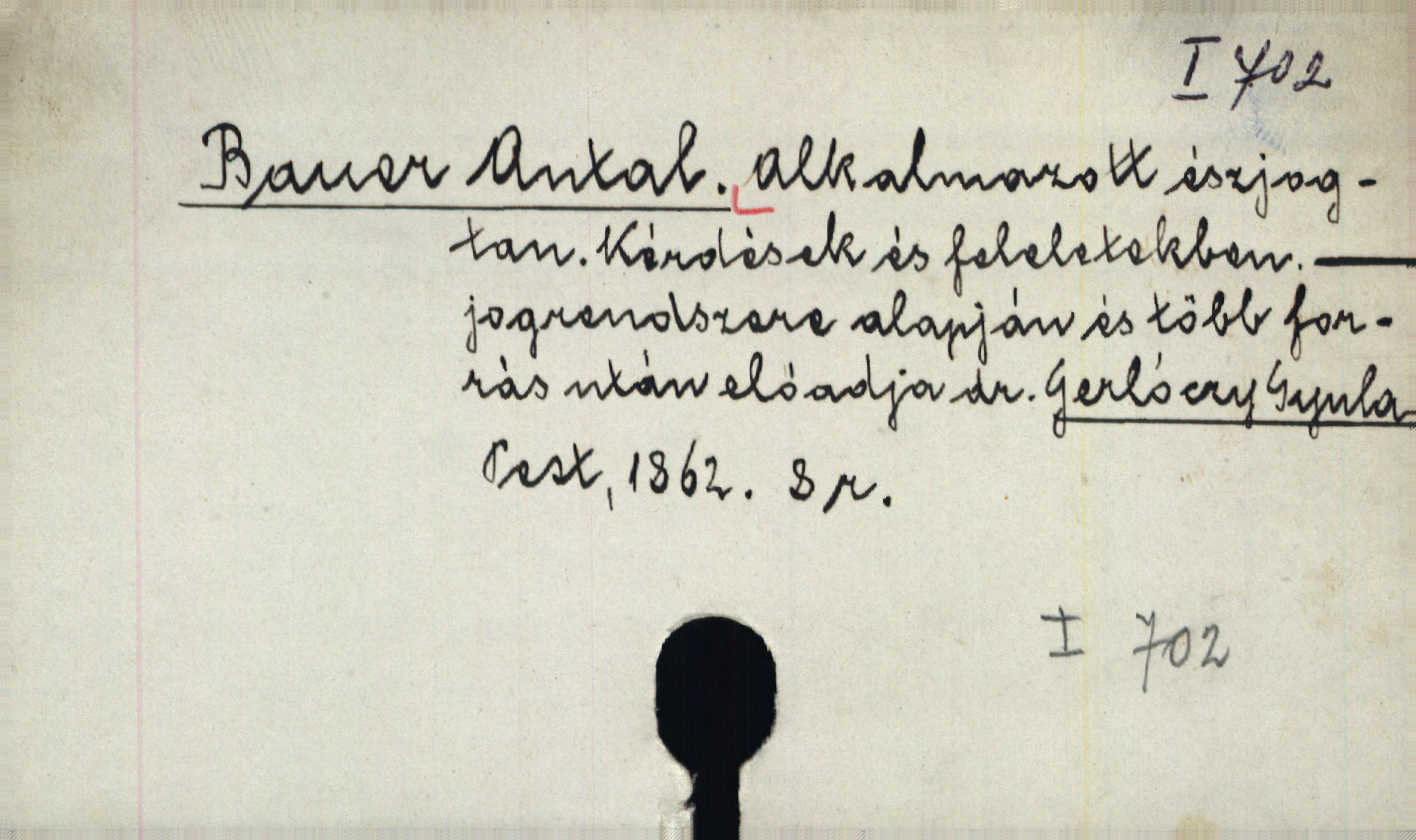 I 702
Bauer Antal. Alkalmazott észjog-
tan. Kérdések és feleletekben. —
jogrendszere alapján és több for-
rás után előadja dr. Gerlóczy Gyula
Pest, 1862. 8 r.
I 702